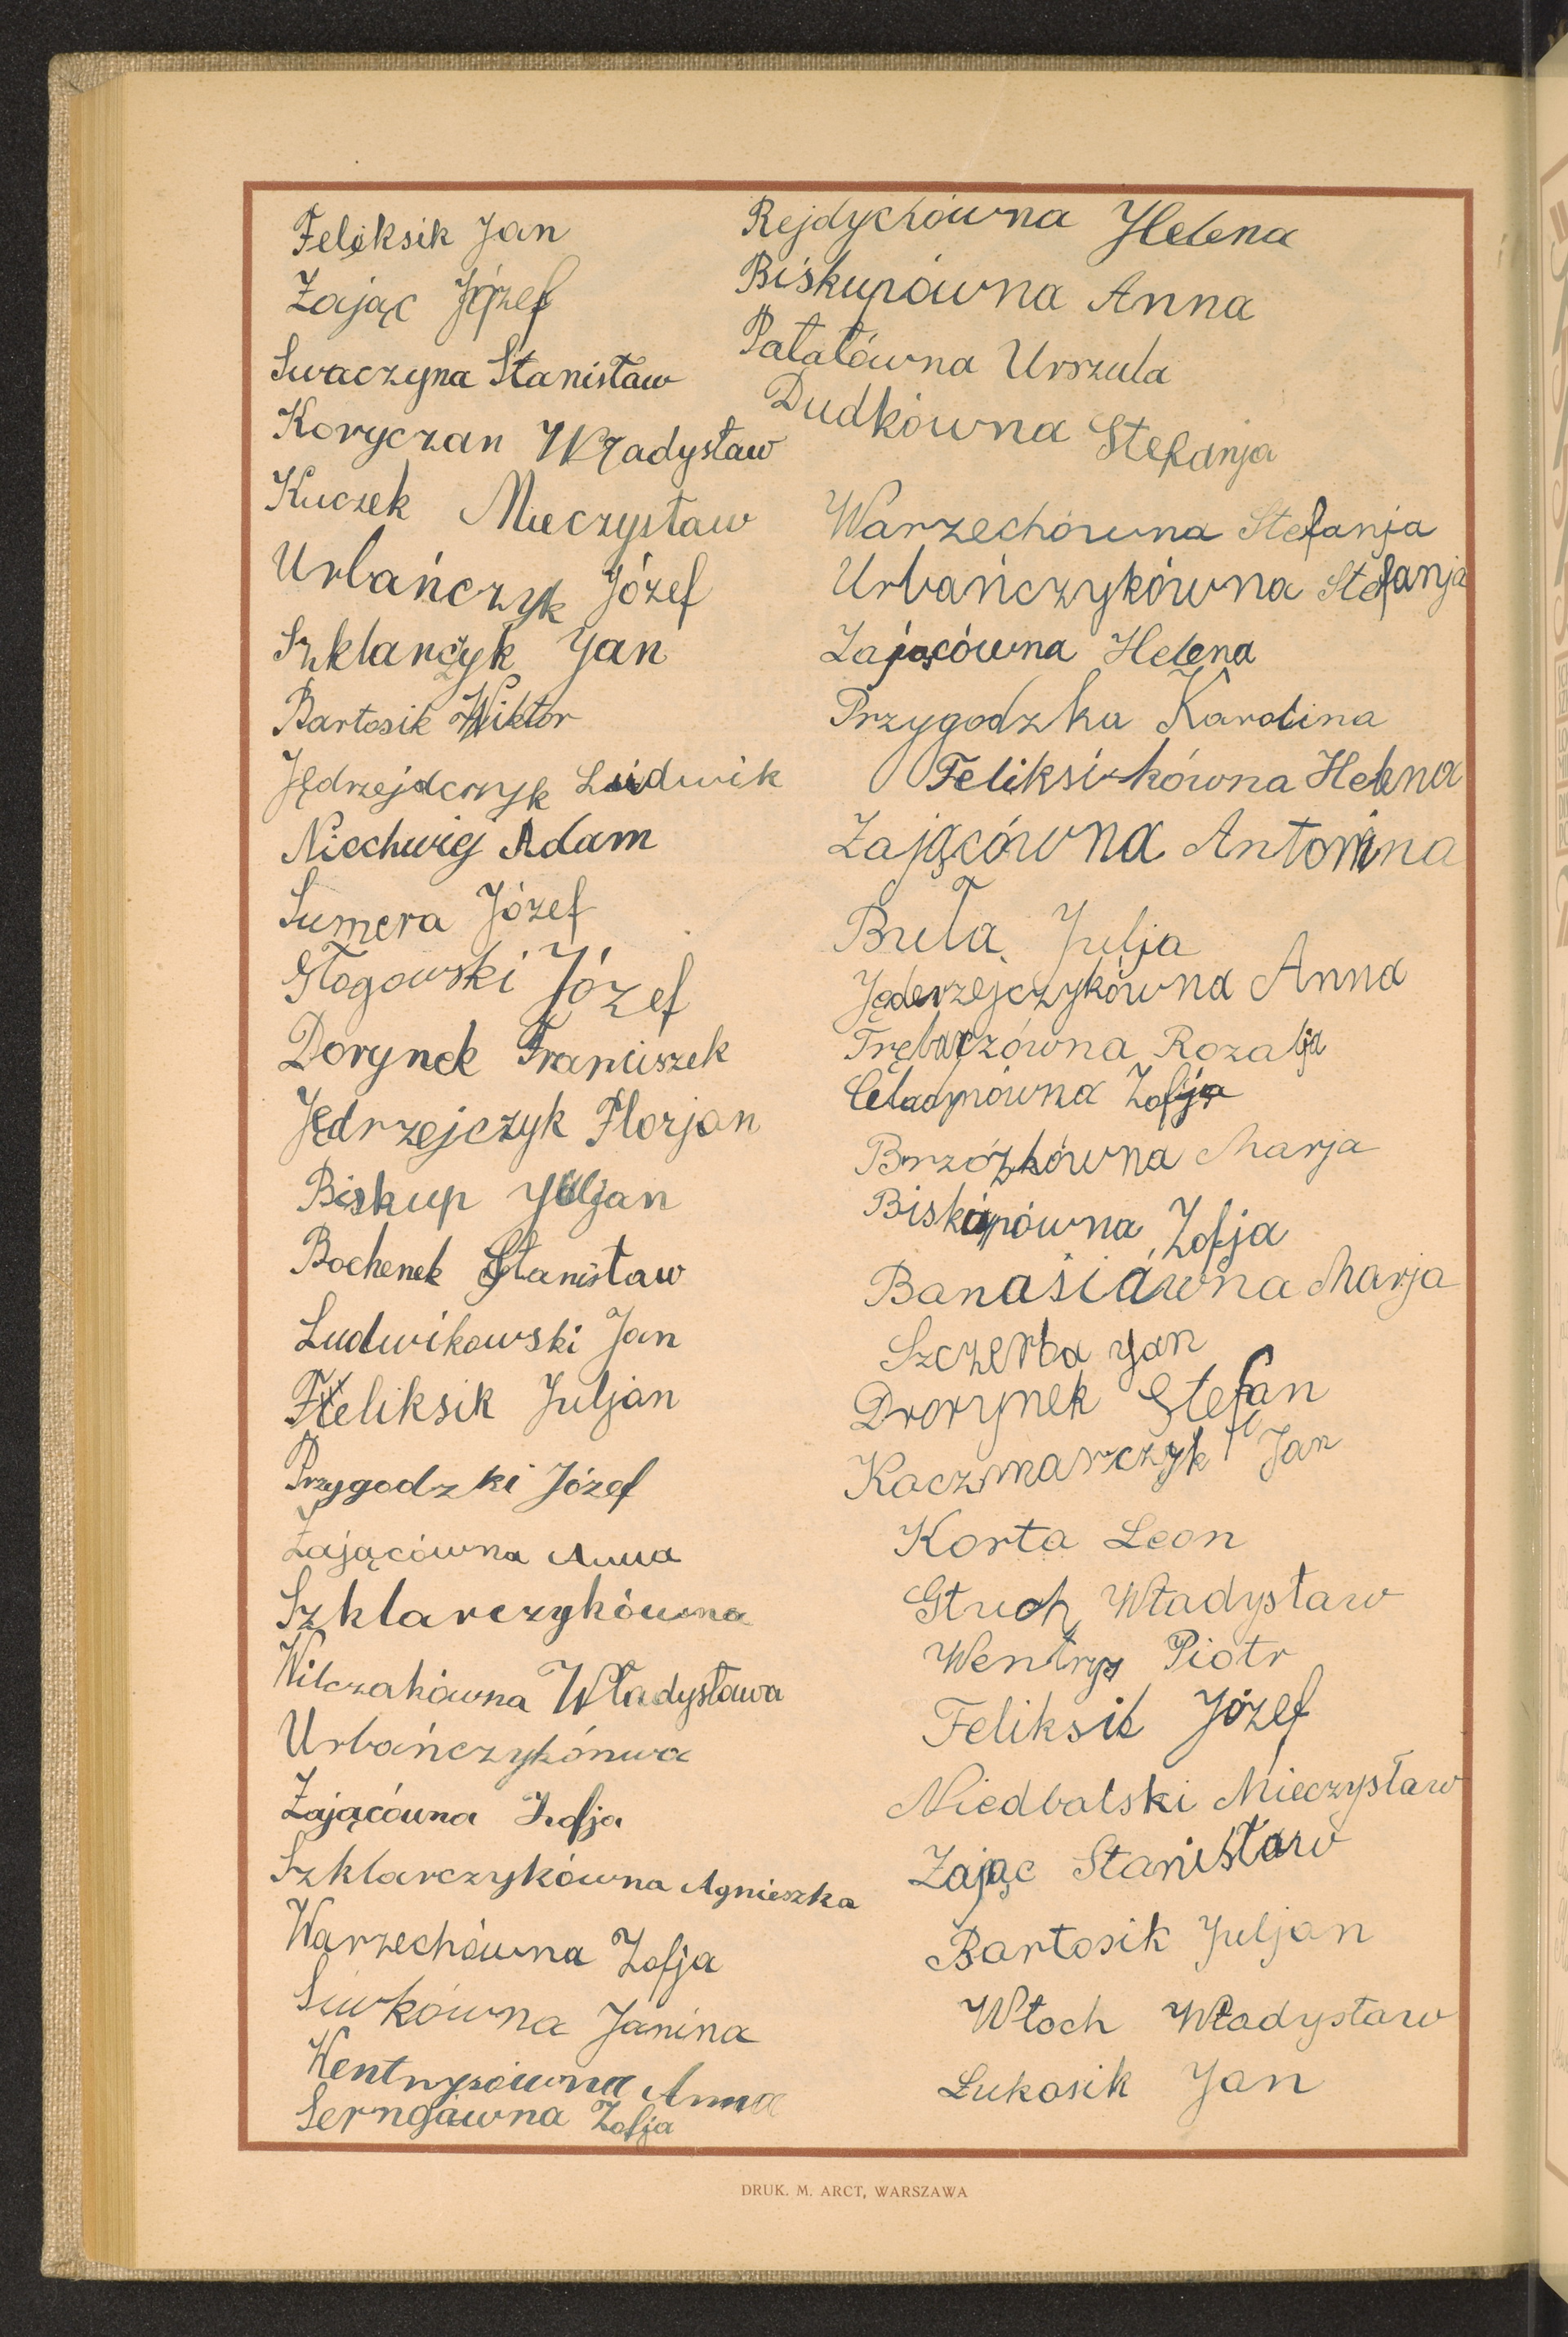 Feliksik Jan
Zając Józef
Swaczyna Stanisław
Koryczan Władysław
Kuczek Mieczysław
Urbańczyk Józef
Szklarczyk Jan
Bartosik Wiktor
Jędrzejdczyk Ludwik
Niechwiej Adam
Sumera Józef
Głogowski Józef
Dorynek Franciszek
Jędrzejczyk Florjan
Biskup Juljan
Bochenek Stanisław
Ludwikowski Jan
Feliksik Juljan
Przygodzki Józef
Zającówna Anna
Szklarczykówna
Wilczakówna Władysława
Urbańczykónwa
Zającówna Zofja
Szklarczykówna Agnieszka
Warzechówna Zofja
Siwkówna Janina
Wentrysówna Anna
Zofja
Rejdychówna Helena
Biskupówna Anna
Patałówna Urszula
Dudkówna Stefanja
Warzechówna Stefanja
Urbańczykówna Stefanja
Zającówna Helena
Przygodzka Karolina
Feliksikówna Helena
Zającówna Antonina
Buła Julja
Jęderzejczykówna Anna
Trębaczówna Rozalja
Celadynówna Zofja
Brzózkówna Marja
Biskupówna Zofja
Banasiówna Marja
Szczerba Jan
Drorynek Stefan
Kaczmarczyk Jan
Korta Leon
Głuch Władysław
Wentrys Piotr
Feliksik Józef
Niedbalski Mieczysław
Zając Stanisław
Bartosik Juljan
Włoch Władysław
Łukasik Jan
DRUK. M. ARCT, WARSZAWA